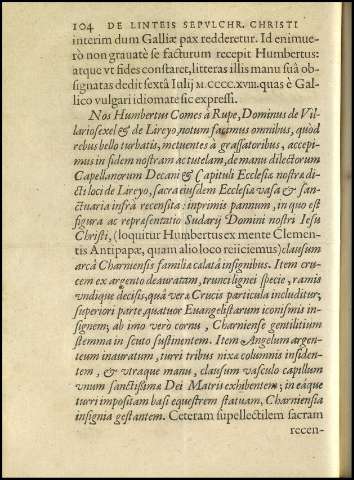 104 DE LINTEIS SEPVLCHR. CHRISTI
interim dum Galliæ pax redderetur. Id enimue-
rò non grauatè se facturum recepit Humbertus:
atque vt fides constaret, litteras illis manu suâ ob-
signatas dedit sextâ Iulij M.CCCC.XVIII. quas è Gal-
lico vulgari idiomate sic expressi.
Nos Humbertus Comes à Rupe, Dominus de Vil-
lariosexel & de Lireyo, notum facimus omnibus, quòd
rebus bello turbatis, metuentes à grassatoribus, accepi-
mus in fidem nostram ac tutelam, de manu dilectorum
Capellanorum Decani & Capituli Ecclesiæ nostræ di-
cti loci de Lireyo, sacra eiusdem Ecclesiæ vasa & san-
ctuaria infrà recensita: inprimis pannum, in quo est
figura ac repræsentatio Sudarij Domini nostri Iesu
Christi, (loquitur Humbertus ex mente Clemen-
tis Antipapæ, quam alio loco reiiciemus) clausum
arcâ Charniensis familiæ calatâ insignibus. Item cru-
cem ex argento deauratam, trunci lignei specie, ramis
vndique decisis, quâ veræ Crucis particula includitur,
superiori parte, quatuor Euangelistarum iconismis in-
signem; ab imo verò cornu, Charniense gentilitium
stemma in scuto sustinentem. Item Angelum argen-
teum inauratum, turri tribus nixæ columnis insiden-
tem, & vtraque manu, clausum vasculo capillum
vnum sanctissimæ Dei Matris exhibentem; in eáque
turri impositam basi equestrem statuam, Charniensia
insignia gestantem. Ceteram supellectilem sacram
recen-